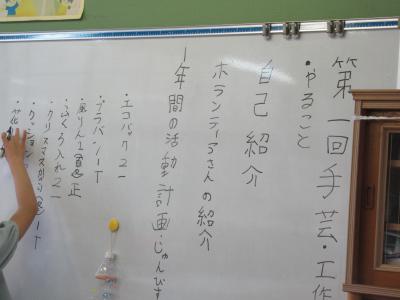 第一回手芸・工作
・やること
自己紹介
ボランティアさんの紹介
1年間の活動計画・じゅんび
・エコバック2ー
・プラバンーT
・ふくろ入れ2ー
・クリスマスかざり
・クッション
・花